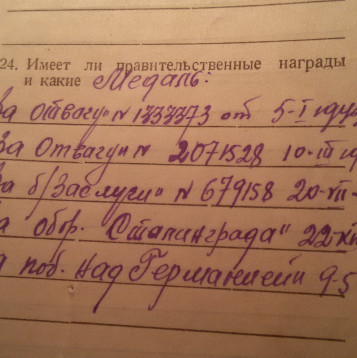 24. Имеет ли правительственные награды
и какие Медаль:
За Отвагу" № 1333373 от 5-I
За Отвагу" № 2071528 10-III
За б/Заслуги" № 679158 20-VII-
За обор. Сталинграда" 22-XII
За поб. над Германией 9-5